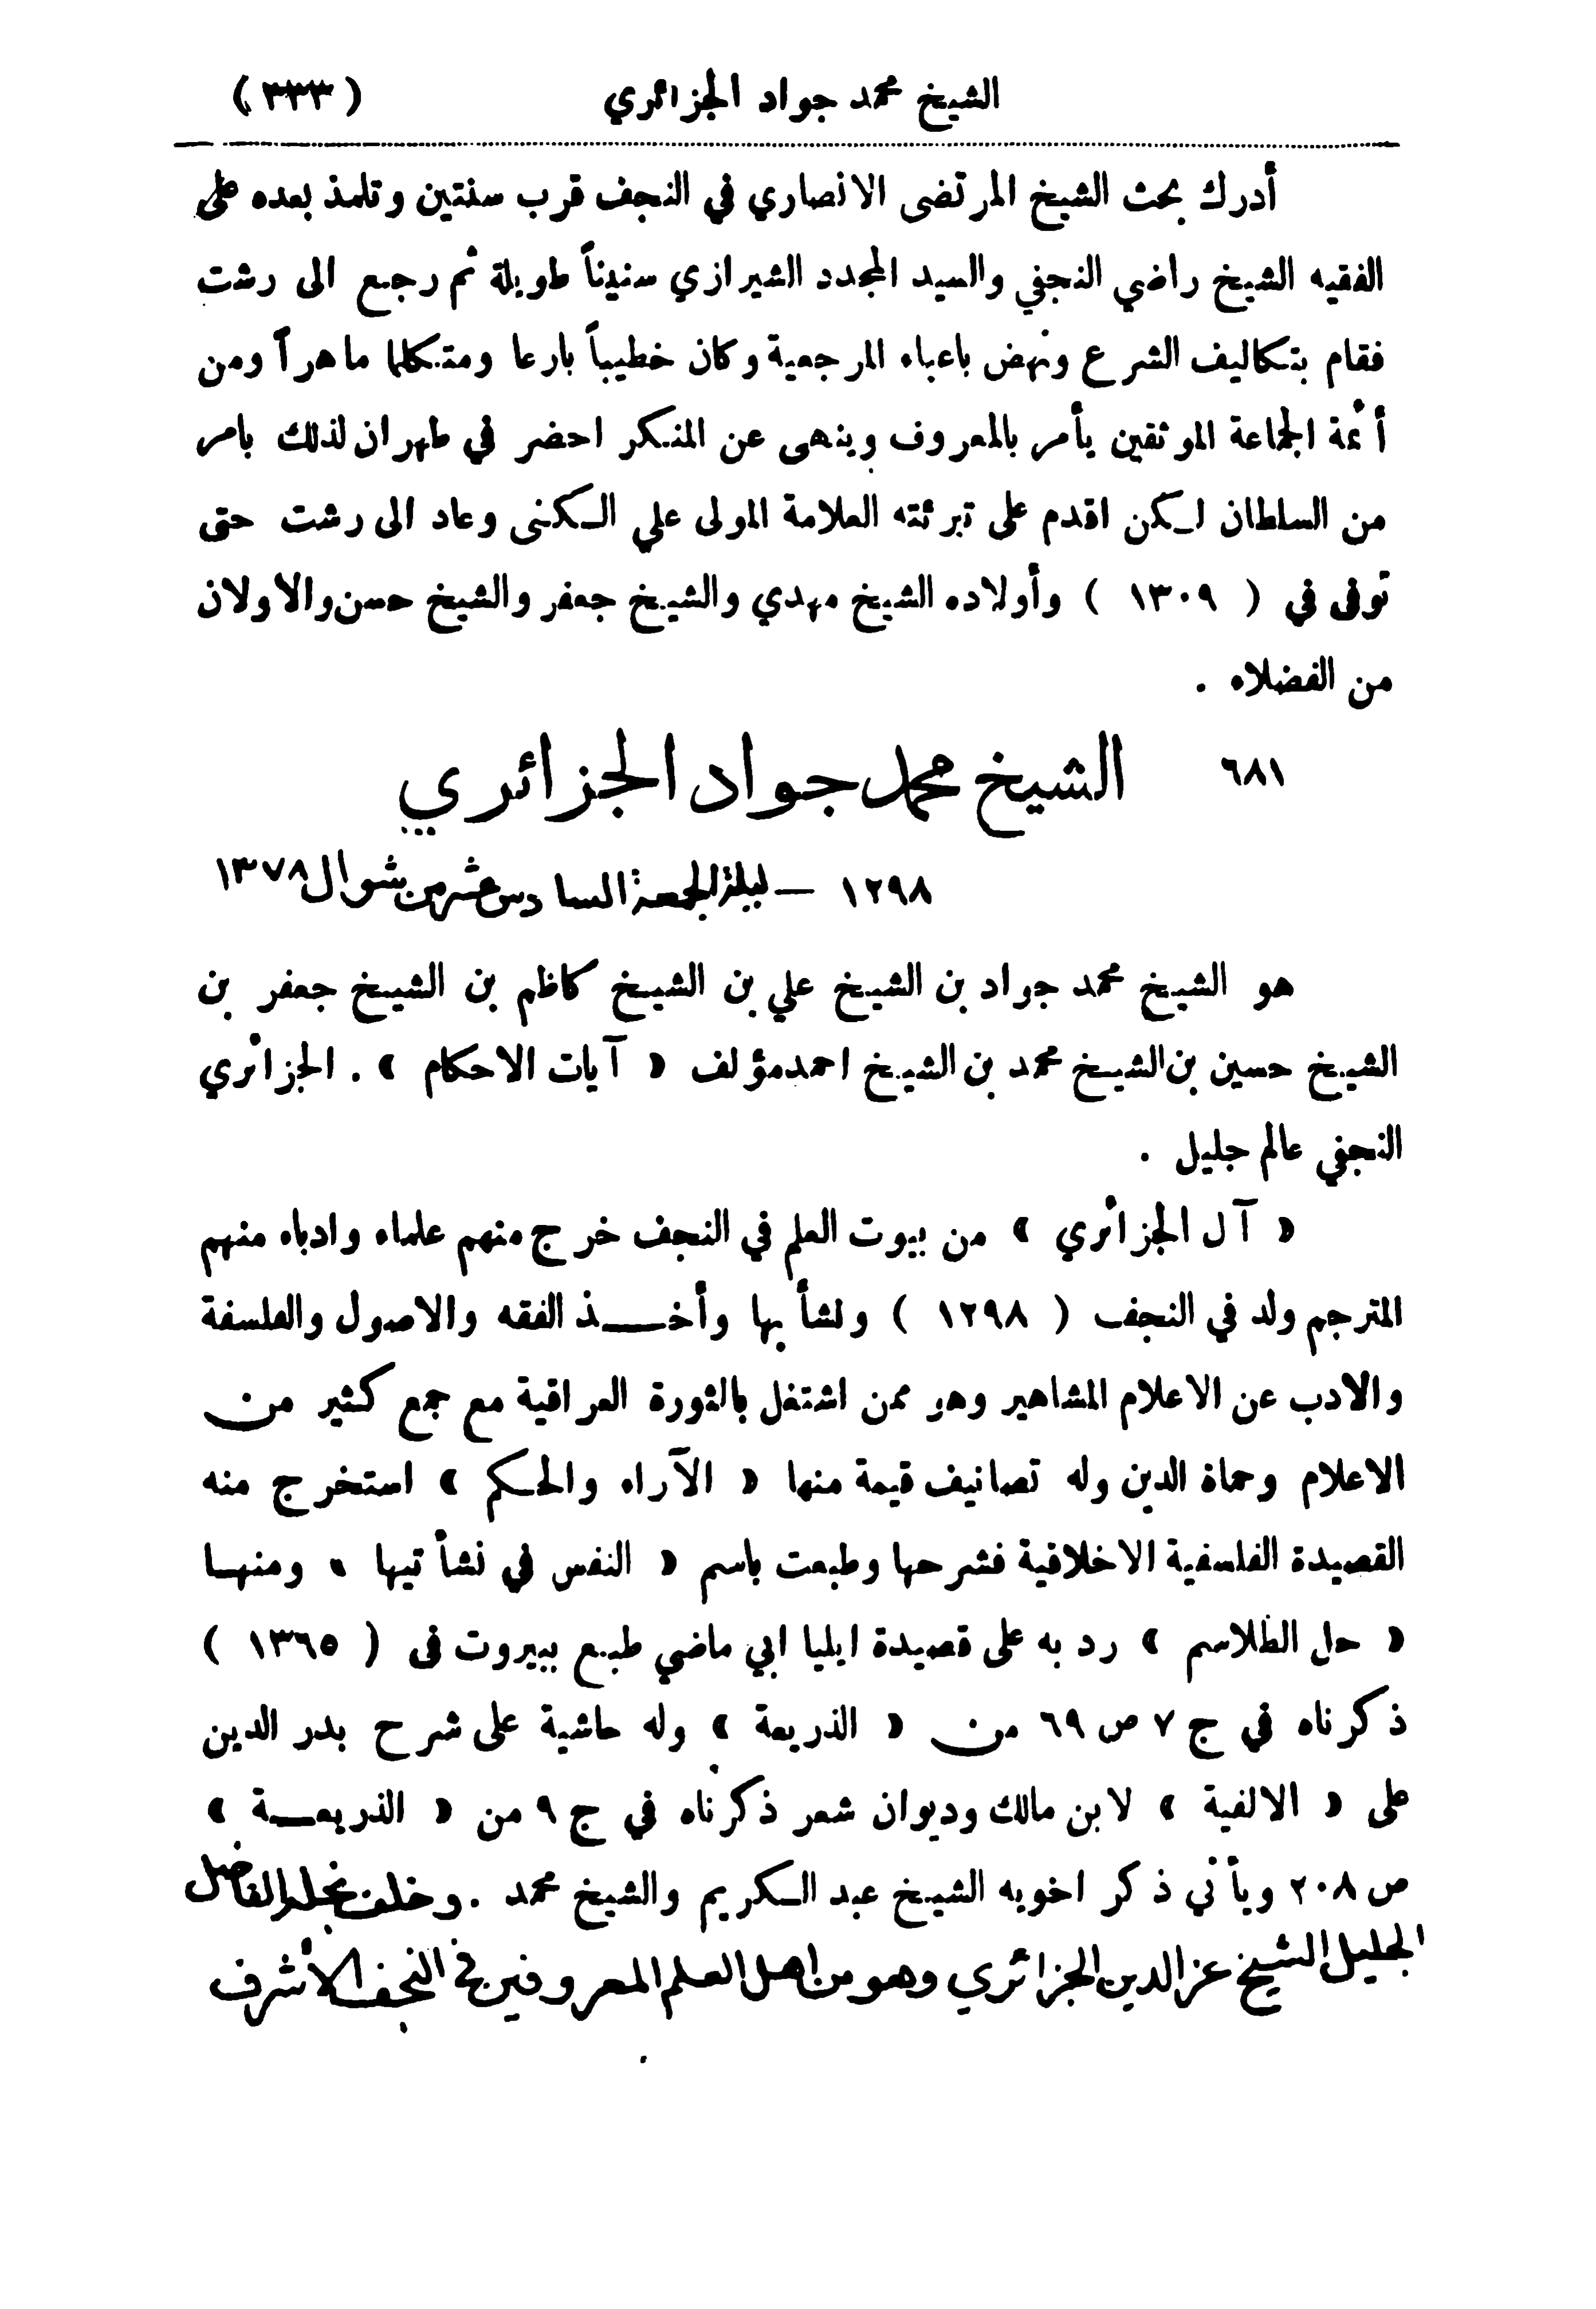 الشيخ محمد جواد الجزائري (٣٣٣)
أدرك بحث الشيخ المرتضى الانصاري في النجف قرب سنتين وتلمذ بعده على
الفقيه الشيخ راضي النجفي والسيد المجدد الشيرازي سنيناً طويلة ثم رجع الى رشت
فقام بتكاليف الشرع ونهض باعباء المرجعية وكان خطيباً بارعا ومتكلما ماهراً ومن
أئمة الجماعة الموثقين يأمر بالمعروف وينهى عن المنكر احضر في طهران لذلك بامر
من السلطان لكن اقدم على تبرئته العلامة المولى علي الكنى وعاد الى رشت حتى
توفى في ( ١٣٠٩ ) وأولاده الشيخ مهدي والشيخ جعفر والشيخ حسن والاولان
من الفضلاء .
٦٨١ الشيخ محمد جواد الجزائري
١٢٩٨ — ليلة الجمعة السادس عشر من شوال ١٣٧٨
هو الشيخ محمد جواد بن الشيخ علي بن الشيخ كاظم بن الشيخ جعفر بن
الشيخ حسين بن الشيخ محمد بن الشيخ احمد مؤلف « آيات الاحكام » . الجزائري
النجفي عالم جليل .
« آل الجزائري » من بيوت العلم في النجف خرج منهم علماء وادباء منهم
المترجم ولد في النجف ( ١٢٩٨ ) ونشأ بها وأخـــذ الفقه والاصول والفلسفة
والادب عن الاعلام المشاهير وهو ممن اشتغل بالثورة العراقية مع جمع كثير من
الاعلام وحماة الدين وله تصانيف قيمة منها « الآراء والحكم » استخرج منه
القصيدة الفلسفية الاخلاقية فشرحها وطبعت باسم « النفس في نشأتيها » ومنهـا
« حل الطلاسم » رد به على قصيدة ايليا ابي ماضي طبع ببيروت فى ( ١٣٦٥ )
ذكرناه في ج ٧ ص ٦٩ من « الذريعة » وله حاشية على شرح بدر الدين
على « الالفية » لابن مالك وديوان شعر ذكرناه في ج ٩ من « الذريعـــة »
ص ٢٠٨ ويأتي ذكر اخويه الشيخ عبد الكريم والشيخ محمد . وخلف نجله الفاضل
الجليل الشيخ عز الدين الجزائري وهو من اهل العلم المعروفين في النجف الأشرف